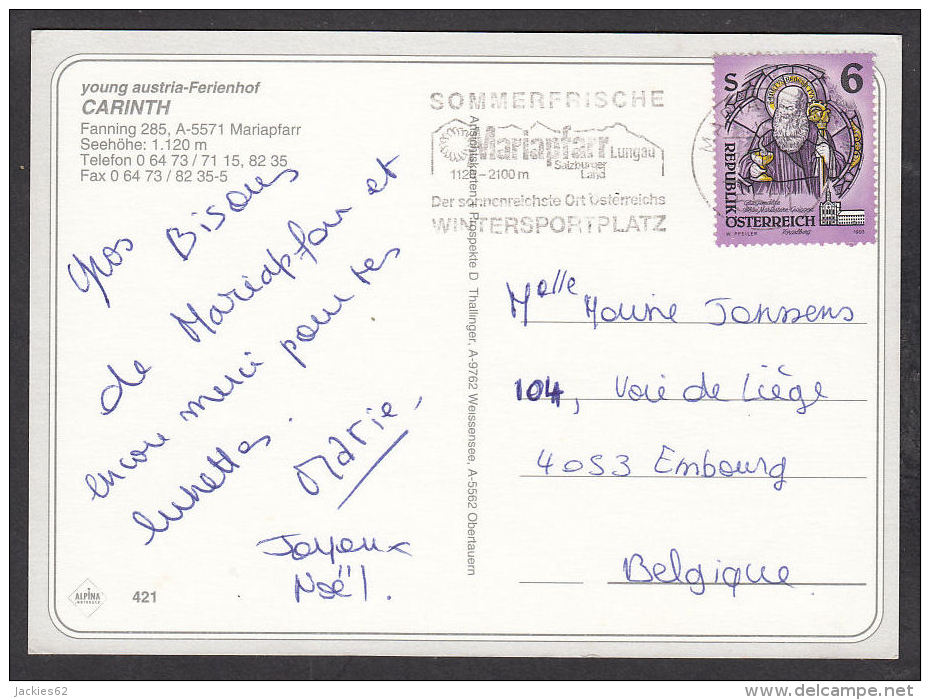 young austria-Ferienhof
CARINTH
Fanning 285, A-5571 Mariapfarr
Seehöhe: 1.120 m
Telefon 0 64 73 / 71 15, 82 35
Fax 0 64 73 / 82 35-5
Gros Bisous
de Mariapfarr et
encore merci pour tes
lunettes.
Marie,
Joyeux
Noël!
ALPINA
421
Ansichtskarten u. Prospekte D. Thallinger, A-9762 Weissensee, A-5562 Obertauern
SOMMERFRISCHE
Mariapfarr Lungau
Salzburger
1120-2100 m Land
Der sonnenreichste Ort Österreichs
WINTERSPORTPLATZ
S 6
REPUBLIK
ÖSTERREICH
W. PFEILER 1993
Melle Mourine Janssens
104, Voie de Liège
4053 Embourg
Belgique
jackies62
www.delcampe.net